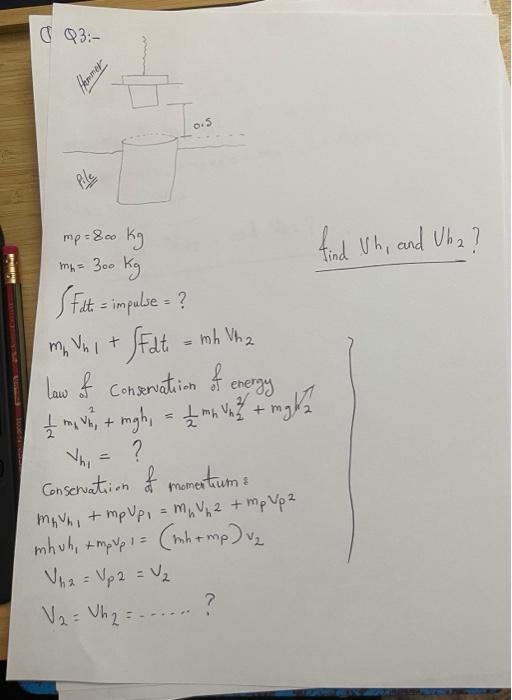 Q3:-
Hammer
0.5
Pile
mp = 800 Kg
mh = 300 Kg
find Vh1 and Vh2 ?
∫Fdt = impulse = ?
mh Vh1 + ∫Fdt = mh Vh2
Law of Conservation of energy
1/2 mh Vh1² + mgh1 = 1/2 mh Vh2² + mgh2
Vh1 = ?
Conservation of momentum:
mhVh1 + mpVp1 = mhVh2 + mpVp2
mhvh1 + mpVp1 = (mh+mp)v2
Vh2 = Vp2 = V2
V2 = Vh2 = ...... ?